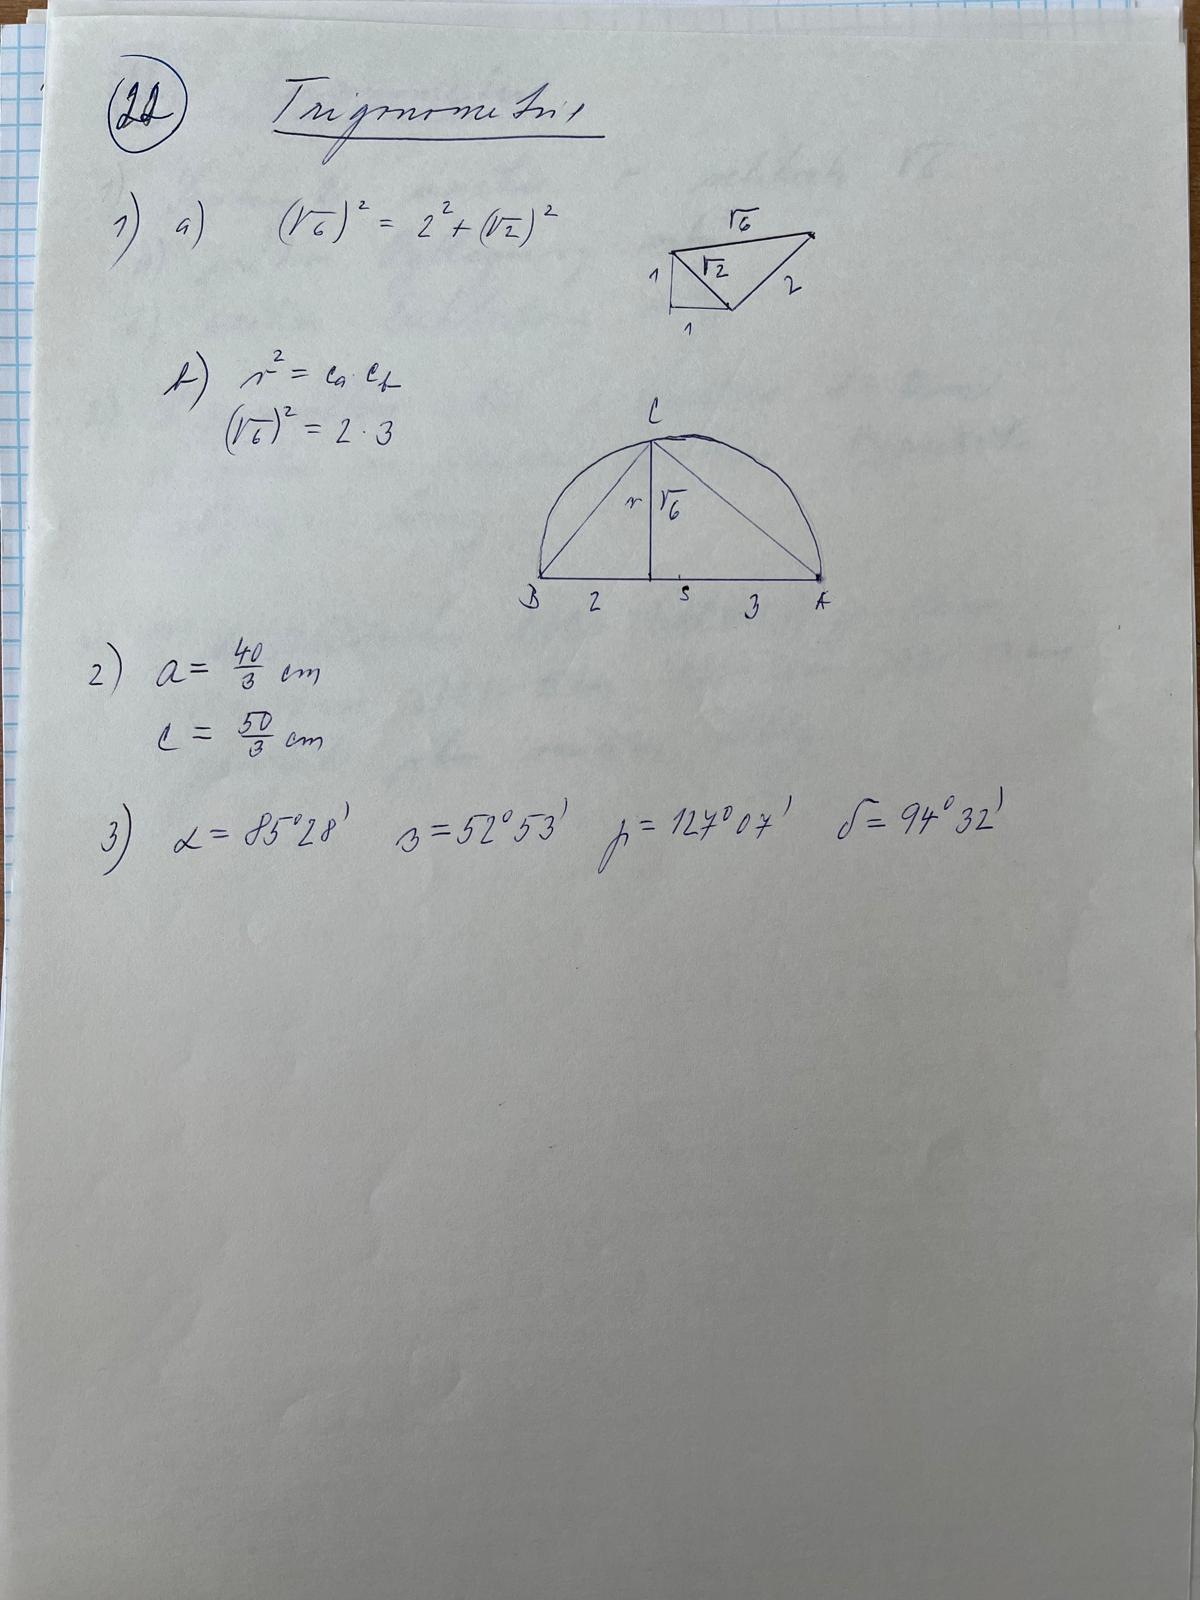 22 Trigonometrie
1) a) (√6)² = 2² + (√2)²
√6
1 √2 2
1
b) v² = ca · cb
(√6)² = 2 · 3
C
v √6
B 2 S 3 A
2) a = 40/3 cm
c = 50/3 cm
3) α = 85°28' β = 52°53' γ = 127°07' δ = 94°32'